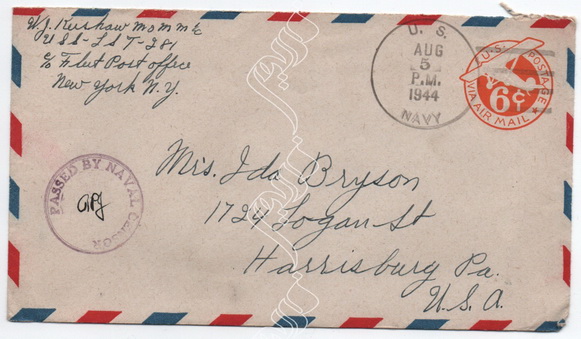 W.J. Kershaw MoMM 1/c
USS-LST-281
c/o Fleet Post office
New York N.Y.
U. S.
AUG
5
P.M.
1944
NAVY
U.S. POSTAGE
6¢
VIA AIR MAIL
PASSED BY NAVAL CENSOR
Mrs. Ida Bryson
1724 Logan St
Harrisburg Pa.
U.S.A.